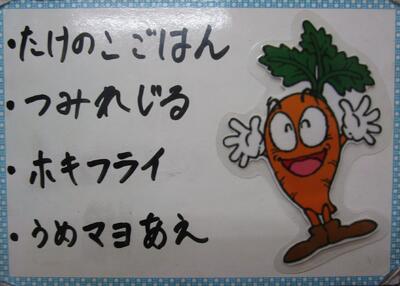 ・たけのこごはん
・つみれじる
・ホキフライ
・うめマヨあえ